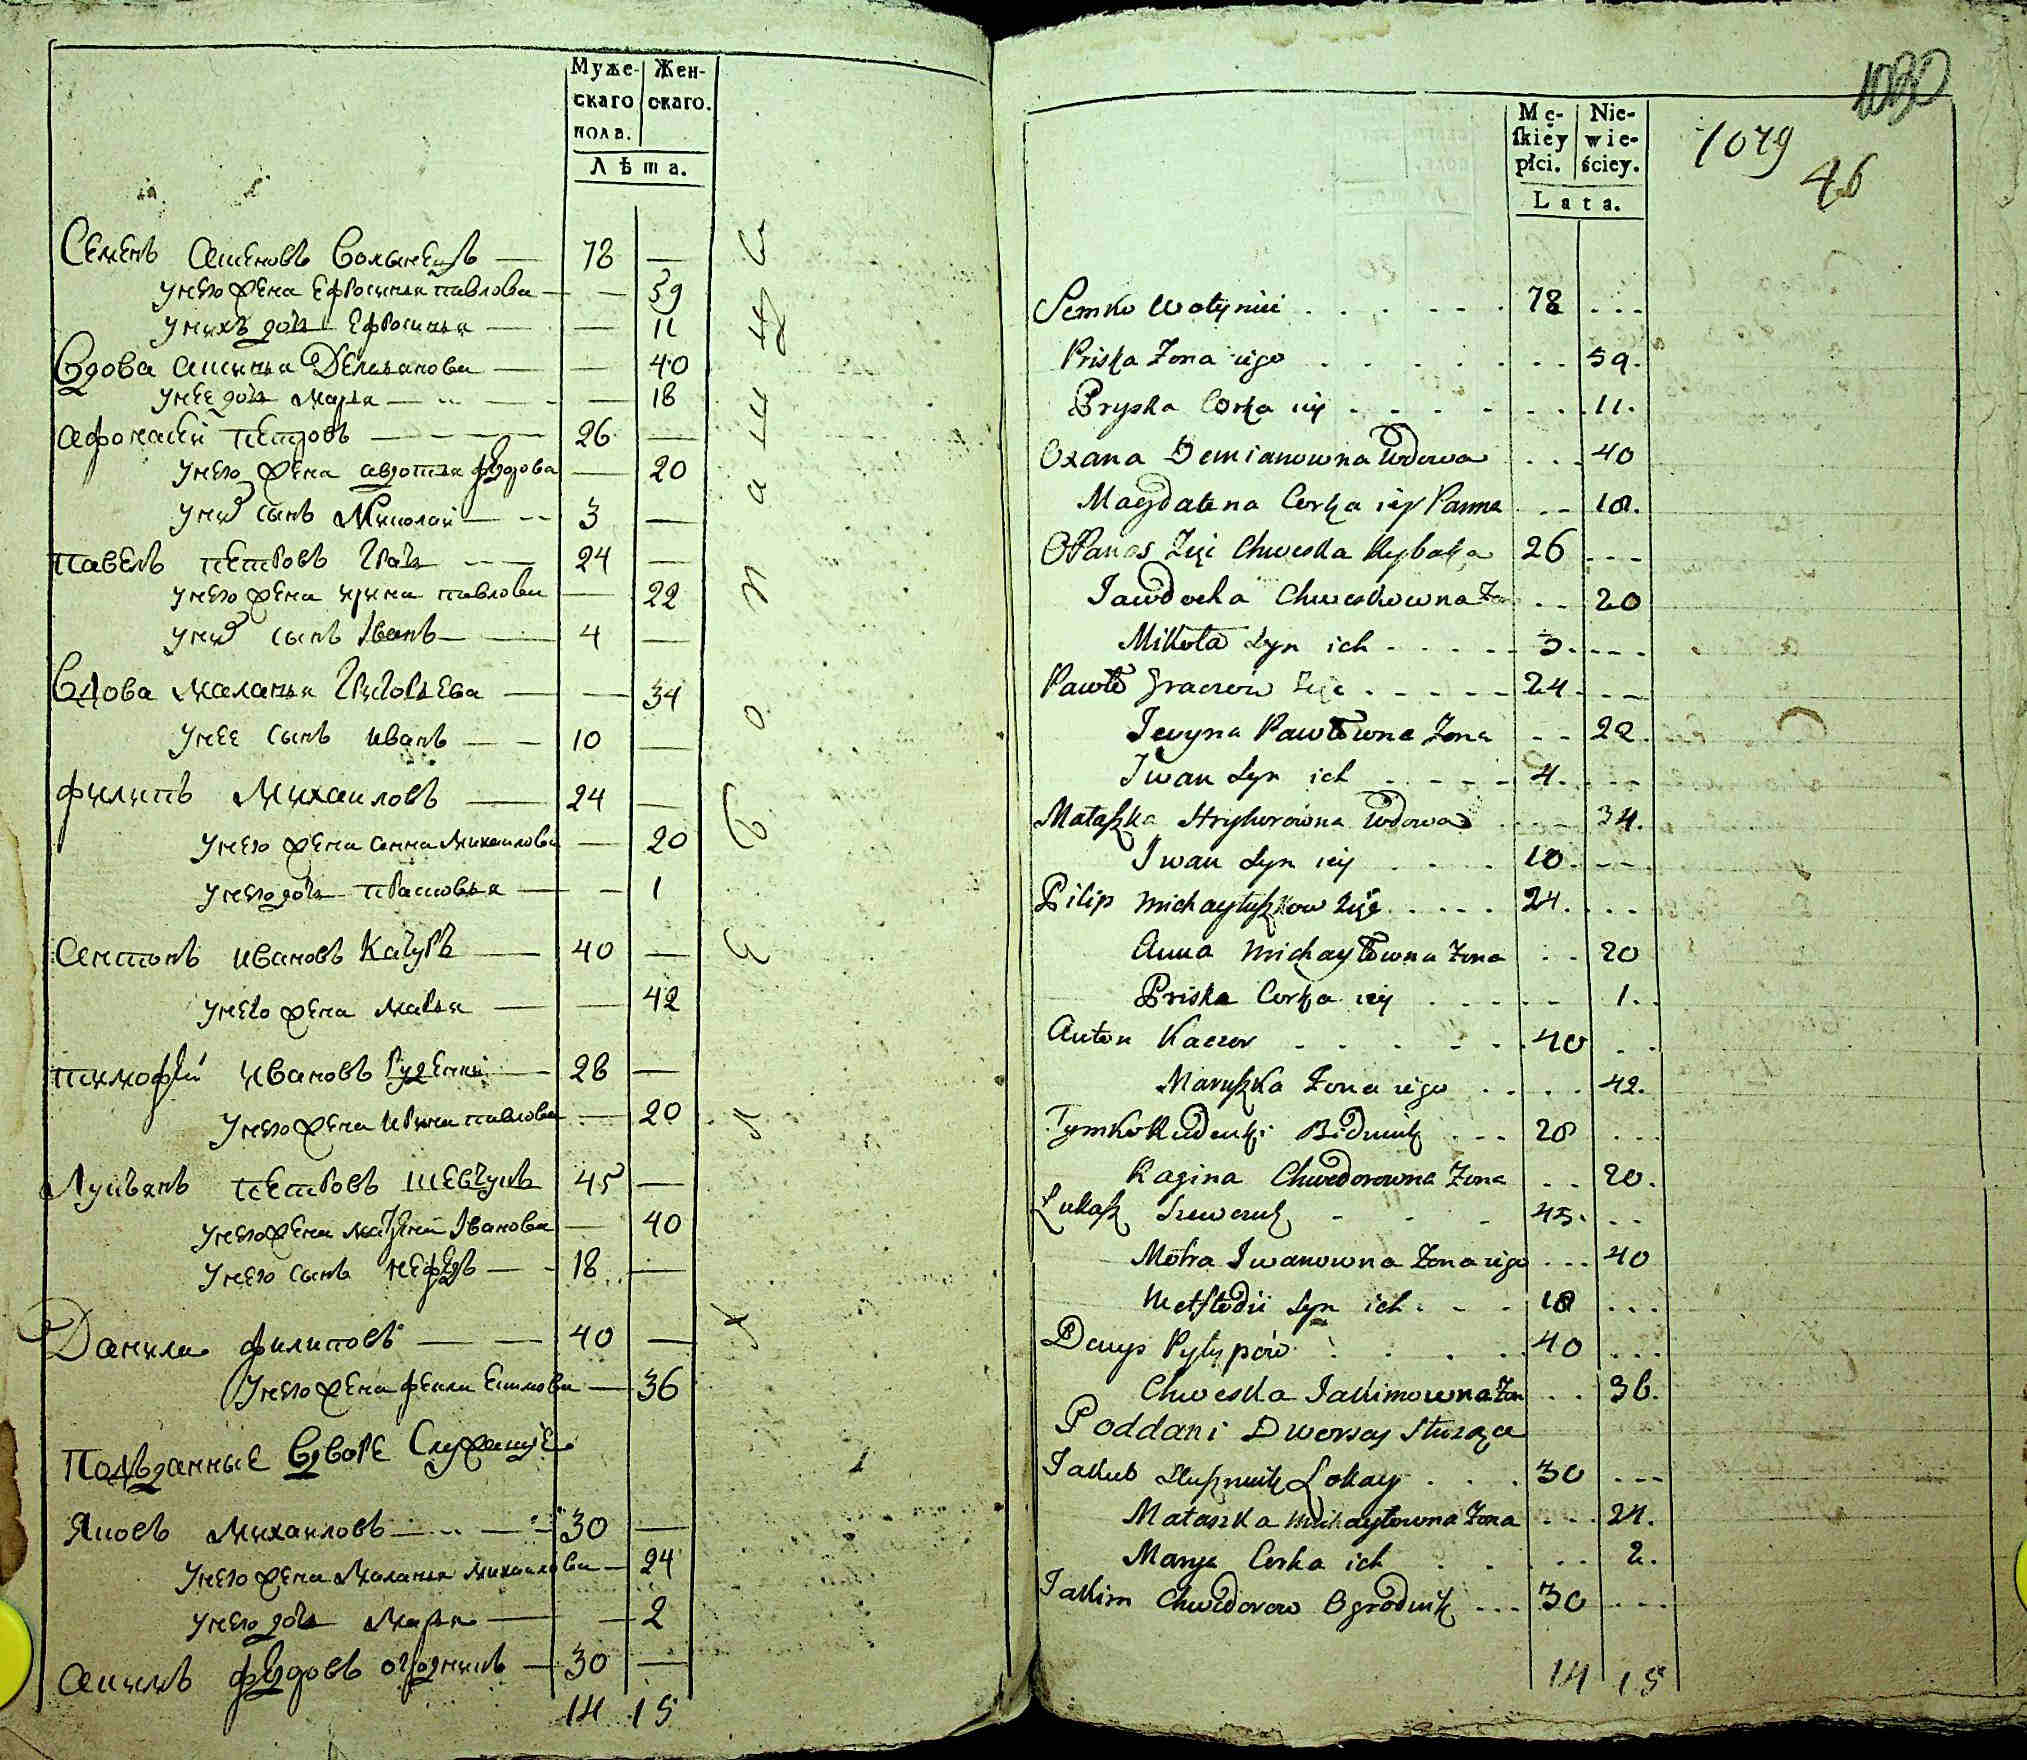 Муже- Жен-
скаго скаго.
пола.
Лѣта.
Семенъ Волынецъ — 78 —
У него жена Ефросинья Павлова — — 59
У нихъ дочь Ефросинья — — 11
Вдова Аксинья Демьанова — — 40
У нее дочь Марья — — 18
Афонасей Петровъ — 26 —
У него жена Авдотья Федорова — 20
У них сынъ Миколай — 3 —
Павелъ Петровъ Грач — 24 —
У него жена Ирина Павлова — 22
У них сынъ Іванъ — 4 —
Вдова Маланья Григорьева — — 34
У нее сынъ Иванъ — 10 —
Филипъ Михаиловъ — 24 —
У него жена Анна Михаилова — 20
У него дочь Прасковья — — 1
Антонъ Ивановъ Качуръ — 40 —
У него жена Марья — — 42
Тимофей Ивановъ Руденкій — 28 —
У него жена Ирина Павлова — 20
Лукьянъ Петровъ Шевчукъ 45 —
У него жена Іванова — 40
У него сынъ — 18 —
Данила Филиповъ — 40 —
У него жена Фекла Екимова — 36
Подъданные Вдворе Служащие
Яковъ Михаиловъ — 30 —
У него жена Маланья Михаилова — 24
У него дочь Марья — — 2
Акимъ Федоровъ Огродникъ — 30 —
14 15
1030
Mę- Nie-
skiey wie-
płci. ściey.
Lata.
1079
46
Semko Wołyniec . . . . . . 78 . . .
Priska Żona iego . . . . . . . . 59.
Pryska Corka iey . . . . . . . . 11.
Oxana Demianowna Wdowa . . . 40
Magdalena Corka iey Panna . . 18.
Opanas Zięć Chweska Rybaka 26 . . .
Jawdocha Chweskowna Żo . . 20
Mikoła Syn ich . . . . . 3 . . . .
Pawło Graczow Zięć . . . . . 24 . . .
Jewyna Pawłowna Żona . . 22.
Iwan Syn ich . . . . . 4. . . .
Małaszka Hryhorowna Wdowa . . . 34.
Iwan Syn iey . . . . 10. . . .
Pilip Michayłyszkow Zięć . . . . . 24. . . .
Anna Michayłowna Żona . . 20
Priska Corka iey . . . . . . 1. .
Anton Kaczor . . . . . . 40 . .
Maruszka Żona iego . . . . . 42.
Tymko Rudenki Bednik . . . 28 . . .
Ragina Chwedorowna Żona . . 20.
Łukasz Szewczuk . . . . 45. . .
Motra Iwanowna Żona iego . . . 40
Syn ich . . . 18 . . .
Denys Pyłypow . . . . . 40 . . .
Chweska Jakimowna Żon . . 36.
Poddani Dworscy Słuzące
Jakub Lokay . . . 30 . . .
Małaszka Michayłowna Żona . . . 24.
Marya Corka ich . . . . . 2.
Jakim Chwedorow Ogrodnik . . . 30 . . .
14 15